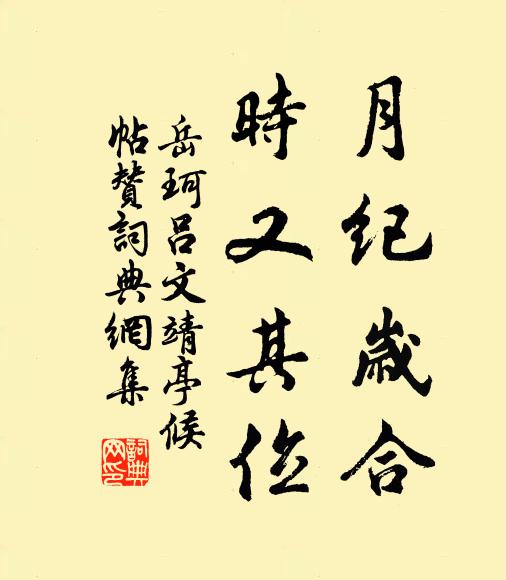 月纪歲合
時又其位
岳珂呂文靖亭候
帖赞詞典網集
詞典网印